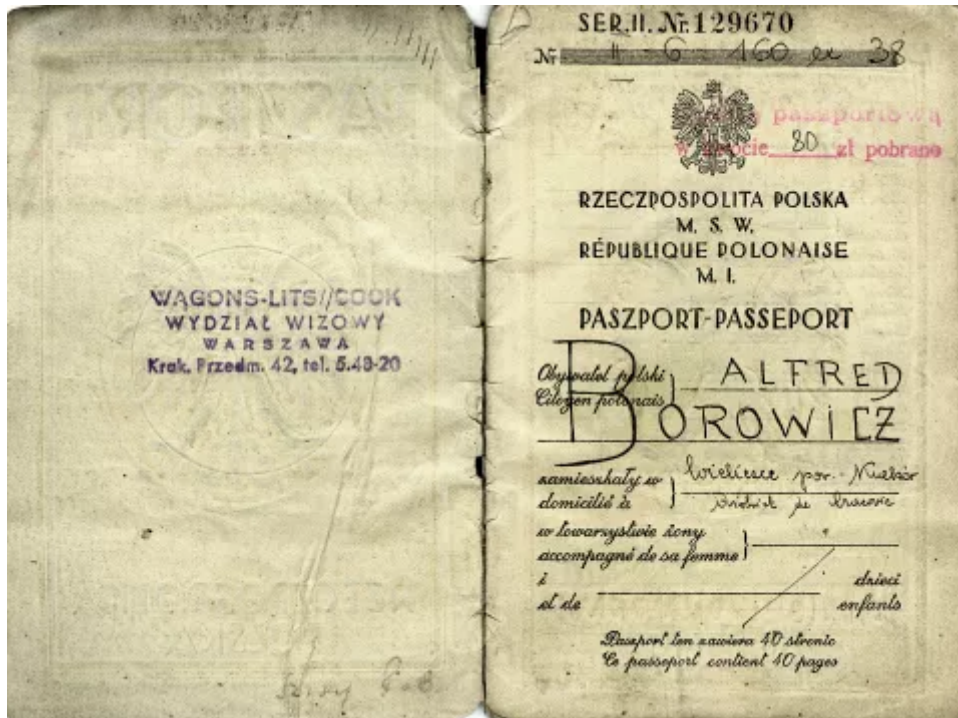 WAGONS-LITS//COOK
WYDZIAŁ WIZOWY
WARSZAWA
Krak. Przedm. 42, tel. 5.48-20
SER.II. Nr. 129670
Nr II - 6 - 160 ex 38
paszportową
w kwocie 80 zł pobrano
RZECZPOSPOLITA POLSKA
M. S. W.
RÉPUBLIQUE POLONAISE
M. I.
PASZPORT-PASSEPORT
Obywatel polski
Citoyen polonais
ALFRED
BOROWICZ
zamieszkały w
domicilié à
w towarzystwie żony
accompagné de sa femme
i dzieci
et de enfants
Paszport ten zawiera 40 stronic
Ce passeport contient 40 pages